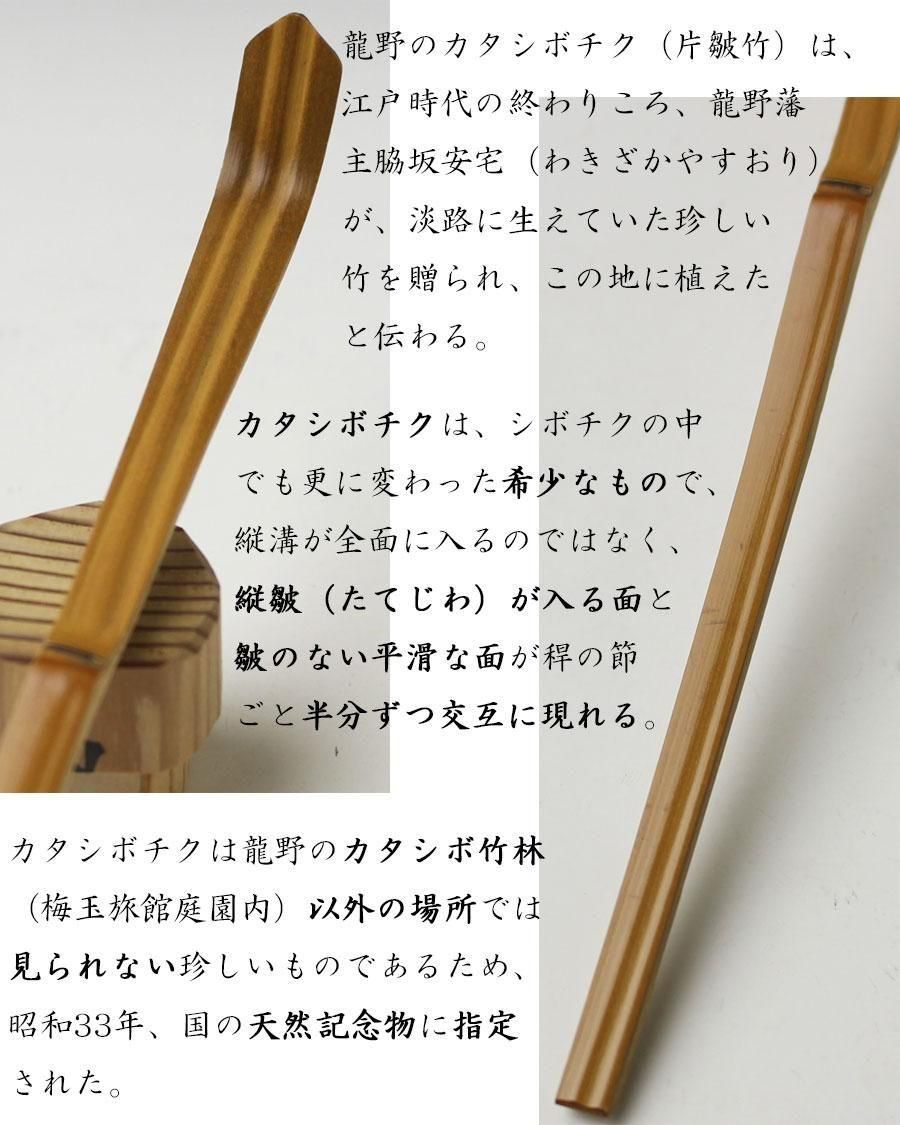 龍野のカタシボチク（片皺竹）は、
江戸時代の終わりころ、龍野藩
主脇坂安宅（わきざかやすおり）
が、淡路に生えていた珍しい
竹を贈られ、この地に植えた
と伝わる。
カタシボチクは、シボチクの中
でも更に変わった希少なもので、
縦溝が全面に入るのではなく、
縦皺（たてじわ）が入る面と
皺のない平滑な面が稈の節
ごと半分ずつ交互に現れる。
カタシボチクは龍野のカタシボ竹林
（梅玉旅館庭園内）以外の場所では
見られない珍しいものであるため、
昭和33年、国の天然記念物に指定
された。